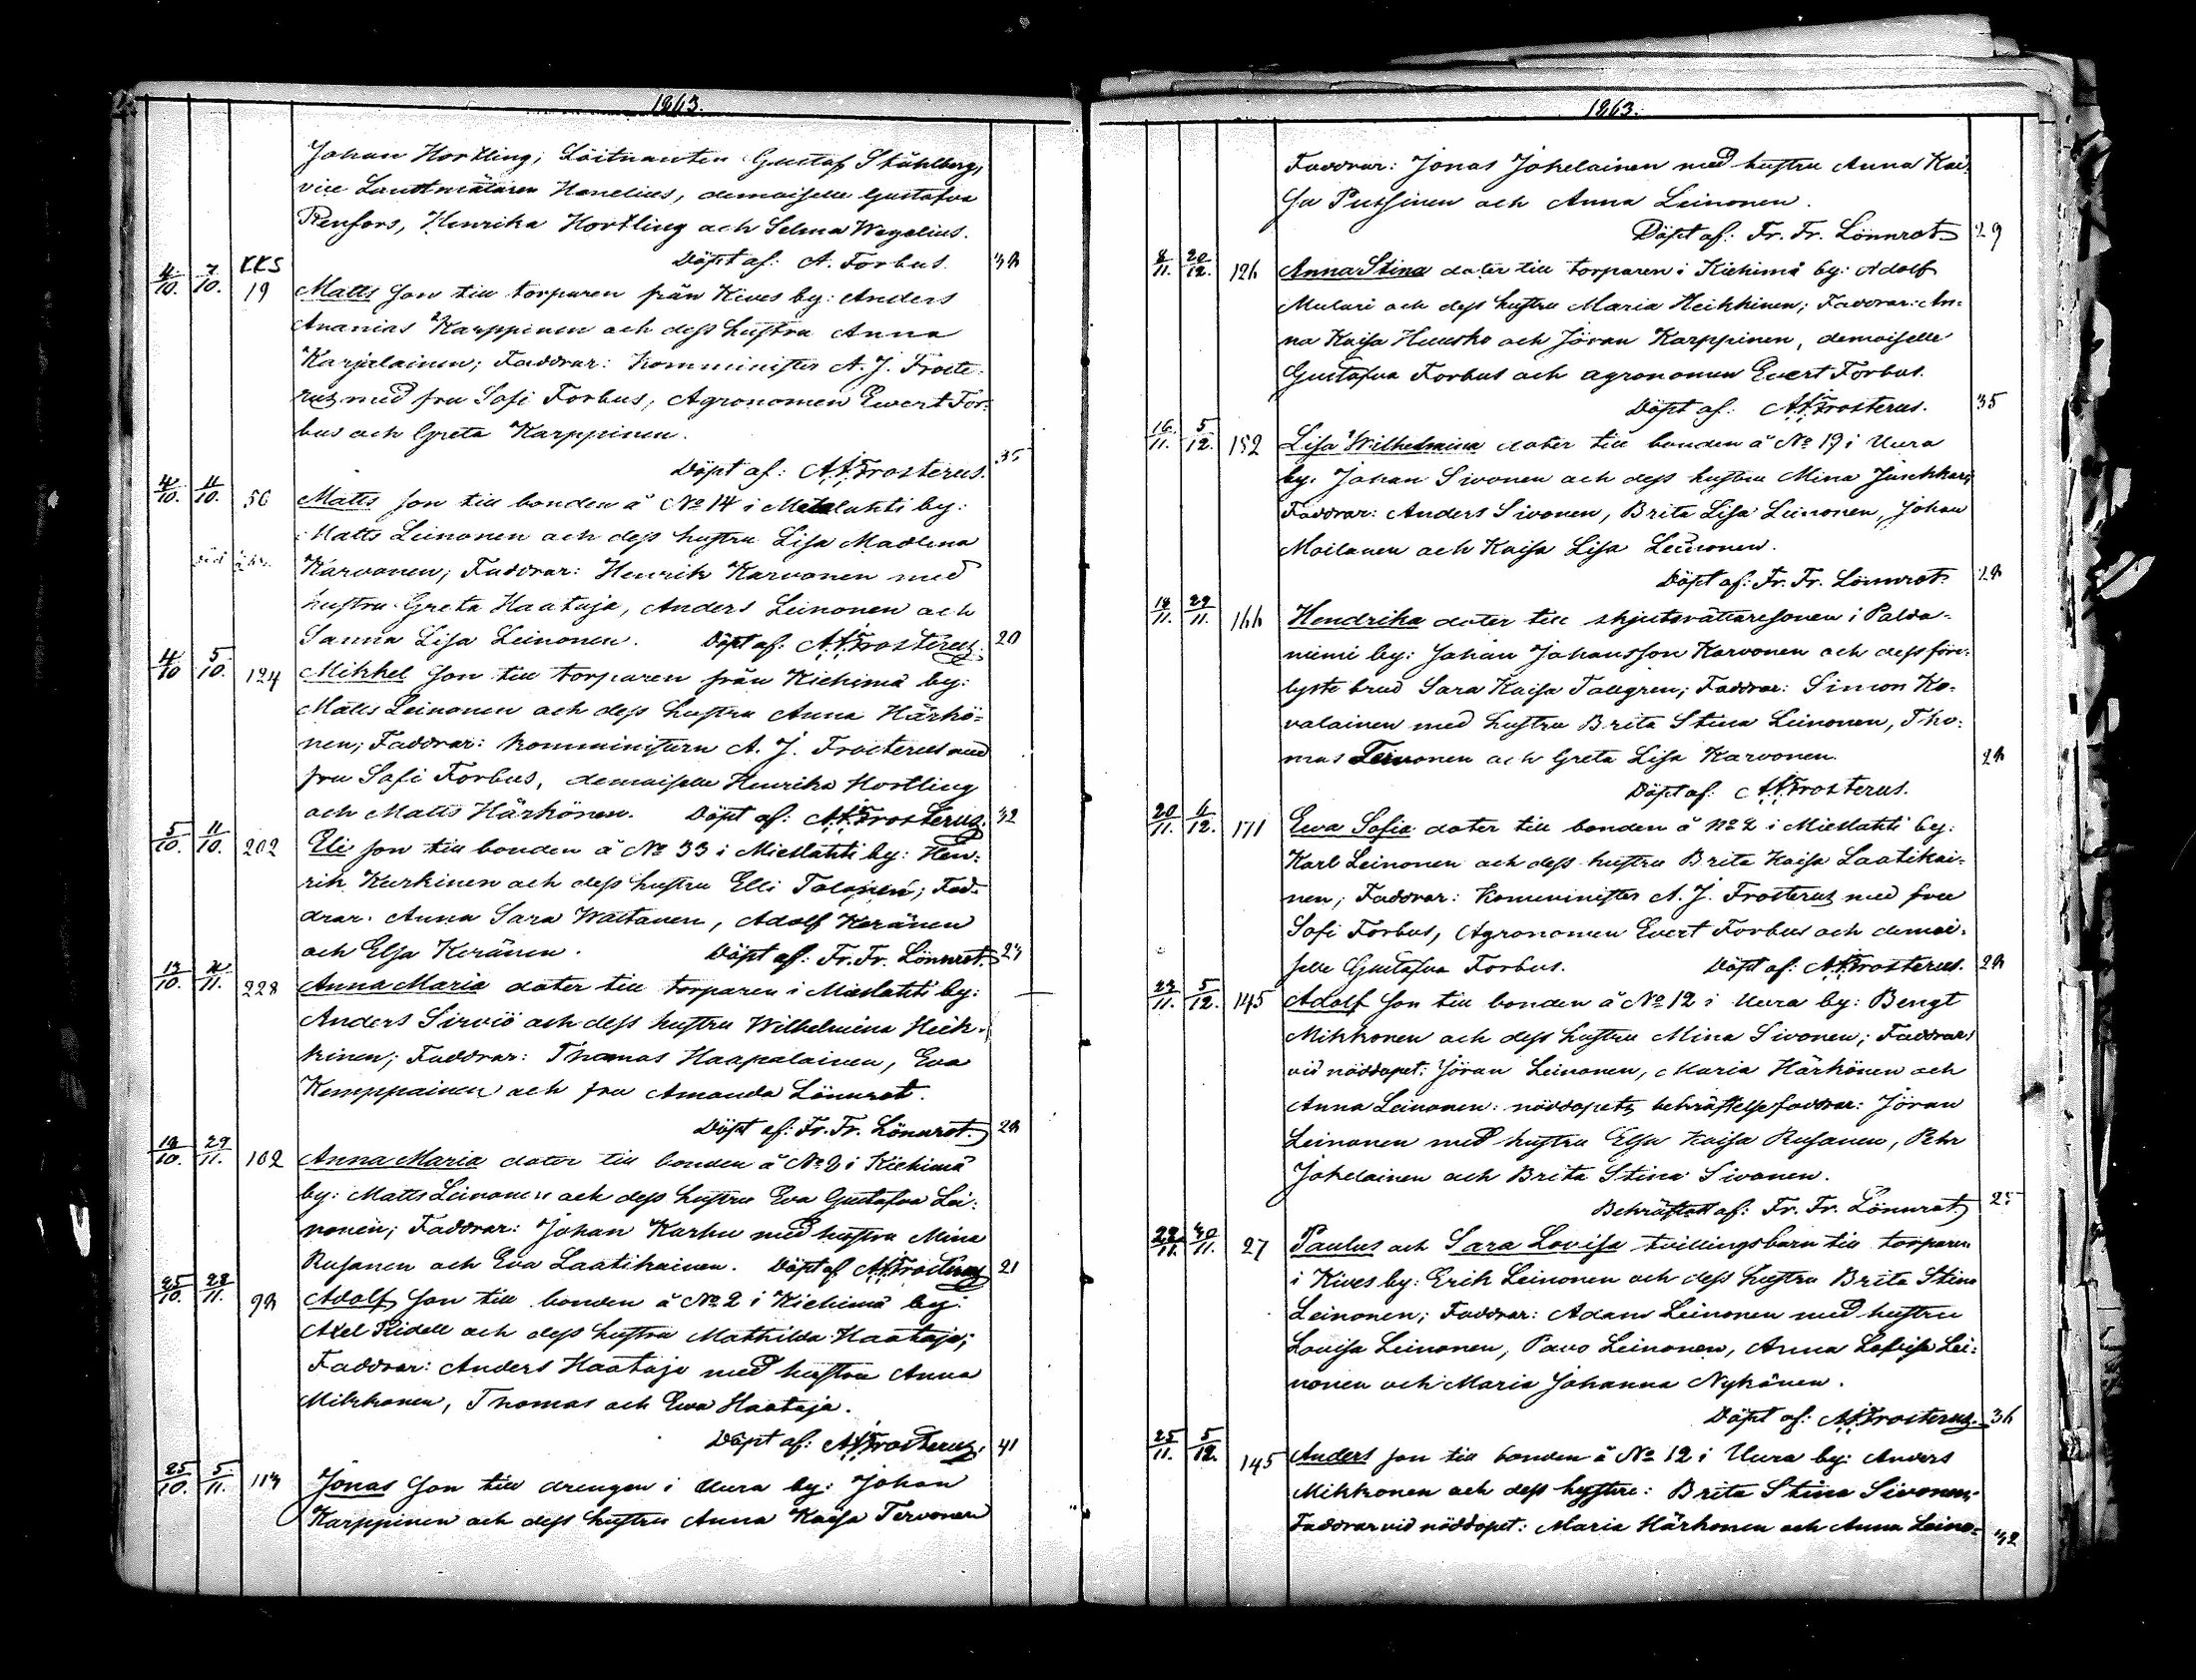 1863.
Johan Hortling, Löitnanten Gustaf Ståhlberg,
vice Landtmätaren Hanelius, demoiselle Gustafva
Renfors, Henrika Hortling och Selma Wegelius.
Döpt af: A. Forbus.
4/10. 7/10. KKS 19 Matts son till torparen från Kives by: Anders
Ananias Karppinen och dess hustru Anna
Karjalainen; Faddrar: Komminister A. J. Froste-
rus med fru Sofi Forbus, Agronomen Ewert For-
bus och Greta Karppinen.
Döpt af: A. J. Frosterus. 35
4/10. 11/10. 56 Matts son till bonden å No 14 i Mieslahti by:
Matts Leinonen och dess hustru Lisa Madlena
Karvonen; Faddrar: Henrik Karvonen med
hustru Greta Haataja, Anders Leinonen och
Sanna Lisa Leinonen. Döpt af: A. J. Frosterus. 20
4/10 5/10. 124 Mikkel son till torparen från Kiehimä by:
Matts Leinonen och dess hustru Anna Härkö-
nen; Faddrar: Komministern A. J. Frosterus med
fru Sofi Forbus, demoiselle Henrika Hortling
och Matts Härkönen. Döpt af: A. J. Frosterus. 32
5/10. 11/10. 202 Eli son till bonden å No 33 i Mieslahti by: Hen-
rik Kurkinen och dess hustru Elli Tolonen; Fad-
drar: Anna Sara Waitanen, Adolf Keränen
och Elsa Keränen. Döpt af: Fr. Fr. Lönnrot.
228 Anna Maria doter till torparen i Mieslahti by:
Anders Sirviö och dess hustru Wilhelmina Heik-
kinen; Faddrar: Thomas Haapalainen, Eva
Kemppainen och fru Amanda Lönnrot.
Döpt af: Fr. Fr. Lönnrot.
29/11. 102 Anna Maria doter till bonden å No 2 i Kiehimä
by: Matts Leinonen och dess hustru Eva Gustafva Lei-
nonen; Faddrar: Johan Karhu med hustru Mina
Rusanen och Eva Laatikainen. Döpt af A. J. Frosterus 21
25/10. 28/11. Adolf son till bonden å No 2 i Kiehimä by:
Axel Ridell och dess hustru Mathilda Haataja;
Faddrar: Anders Haataja med hustru Anna
Mikkonen, Thomas och Ewa Haataja.
Döpt af: A. J. Frosterus. 41
25/10. 5/11. Jonas son till drengen i Uura by: Johan
Karppinen och dess hustru Anna Kaisa Tervonen
1863.
Faddrar: Jonas Jokelainen med hustru Anna Kai-
sa Pussinen och Anna Leinonen.
Döpt af: Fr. Fr. Lönnrot 29
8/11. 20/12. 126 Anna Stina doter till torparen i Kiehimä by: Adolf
Mulari och dess hustru Maria Heikkinen; Faddrar: An-
na Kaisa Huusko och Jöran Karppinen, demoiselle
Gustafva Forbus och agronomen Evert Forbus.
Döpt af: A. J. Frosterus. 35
16/11. 5/12. 152 Lisa Wilhelmina doter till bonden å No 19 i Uura
by: Johan Sivonen och dess hustru Mina Junkkari;
Faddrar: Anders Sivonen, Brita Lisa Leinonen, Johan
Moilanen och Kaisa Lisa Leinonen.
Döpt af: Fr. Fr. Lönnrot
18/11. 29/11. 166 Hendrika doter till skjutsrättaresonen i Palda-
niemi by: Johan Johansson Karvonen och dess före-
lyste brud Sara Kaisa Tallgren; Faddrar: Simon Ko-
valainen med hustru Brita Stina Leinonen, Tho-
mas Leinonen och Greta Lisa Karvonen.
Döpt af: A. J. Frosterus.
20/11. 6/12. 171 Ewa Sofia doter till bonden å No 2 i Mieslahti by:
Karl Leinonen och dess hustru Brita Kaisa Laatikai-
nen; Faddrar: Komminister A. J. Frosterus med fru
Sofi Forbus, Agronomen Evert Forbus och demoi-
selle Gustafva Forbus. Döpt af: A. J. Frosterus.
23/11. 5/12. 145 Adolf son till bonden å No 12 i Uura by: Bengt
Mikkonen och dess hustru Mina Sivonen; Faddrar
vid nöddopet: Jöran Leinonen, Maria Härkönen och
Anna Leinonen: nöddopets bekräftelse faddrar: Jöran
Leinonen med hustru Elsa Kaisa Rusanen, Pehr
Jokelainen och Brita Stina Sivonen.
Bekräftadt af: Fr. Fr. Lönnrot 25
22/11. 30/11. 27 Paulus och Sara Lovisa tvillingsbarn till torparen
i Kives by: Erik Leinonen och dess hustru Brita Stina
Leinonen; Faddrar: Adam Leinonen med hustru
Lovisa Leinonen, Pavo Leinonen, Anna Lovisa Lei-
nonen och Maria Johanna Nyhönen.
Döpt af: A. J. Frosterus. 36
25/11. 5/12. 145 Anders son till bonden å No 12 i Uura by: Anders
Mikkonen och dess hustru: Brita Stina Sivonen;
Faddrar vid nöddopet: Maria Härkonen och Anna Leino- 32